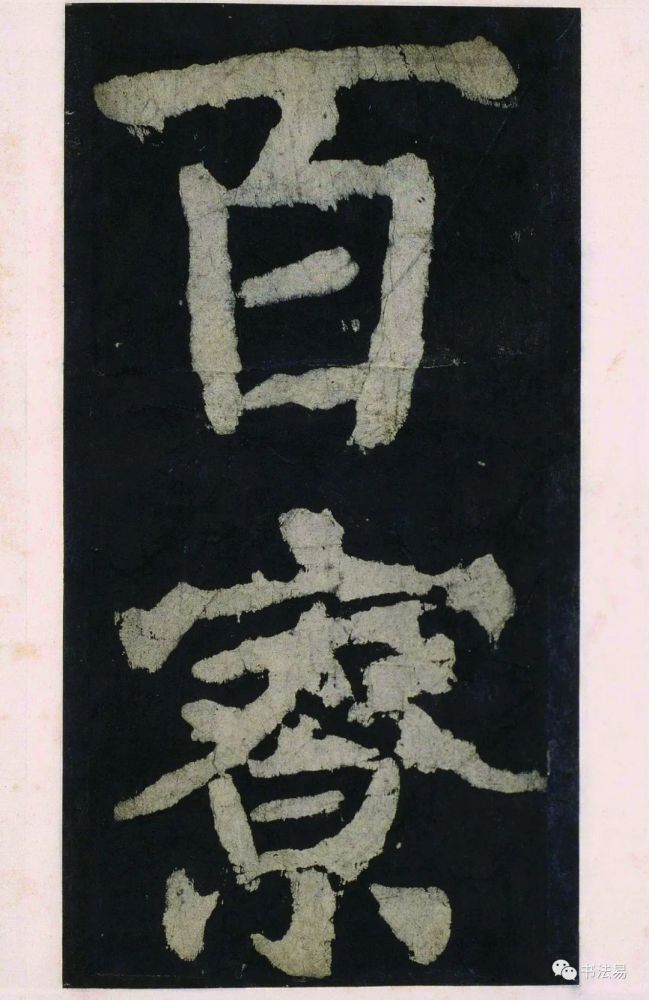 百
寮
书法易